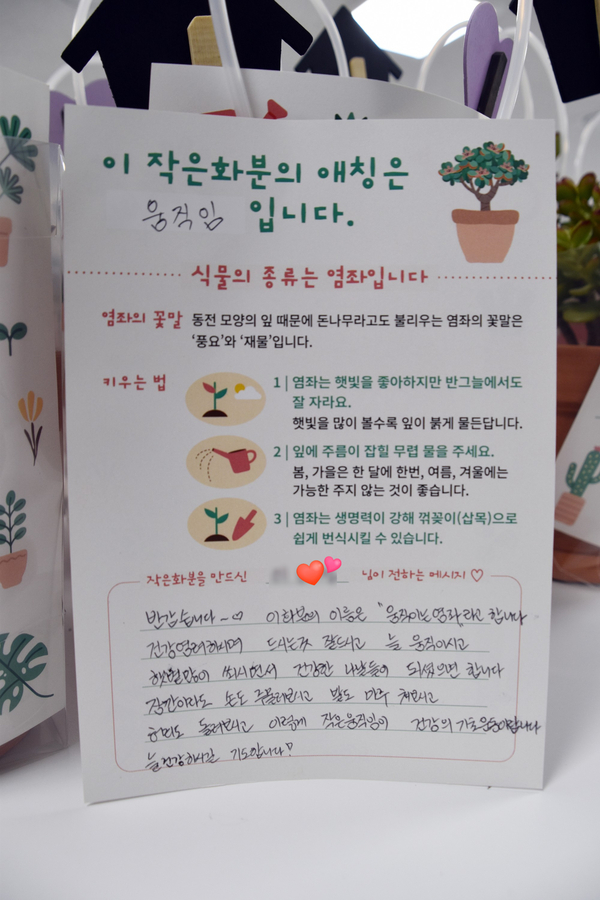 이 작은화분의 애칭은
움직임 입니다.
식물의 종류는 염좌입니다
염좌의 꽃말 동전 모양의 잎 때문에 돈나무라고도 불리우는 염좌의 꽃말은
‘풍요’와 ‘재물’입니다.
키우는 법
1 | 염좌는 햇빛을 좋아하지만 반그늘에서도
잘 자라요.
햇빛을 많이 볼수록 잎이 붉게 물든답니다.
2 | 잎에 주름이 잡힐 무렵 물을 주세요.
봄, 가을은 한 달에 한번, 여름, 겨울에는
가능한 주지 않는 것이 좋습니다.
3 | 염좌는 생명력이 강해 꺾꽂이(삽목)으로
쉽게 번식시킬 수 있습니다.
작은화분을 만드신 님이 전하는 메시지 ♡
반갑습니다~♡ 이 화분의 이름은 "움직이는 염좌"라고 합니다
건강염려하시며 드시는것 잘드시고 늘 움직이시고
햇빛많이 쐬시면서 건강한 나날들이 되셨으면 합니다
잠깐이라도 손도 주물러보시고 발도 마주 쳐보시고
돌려보시고 이렇게 작은움직임이 건강의 기초운동이랍니다
늘 건강하시길 기도합니다!